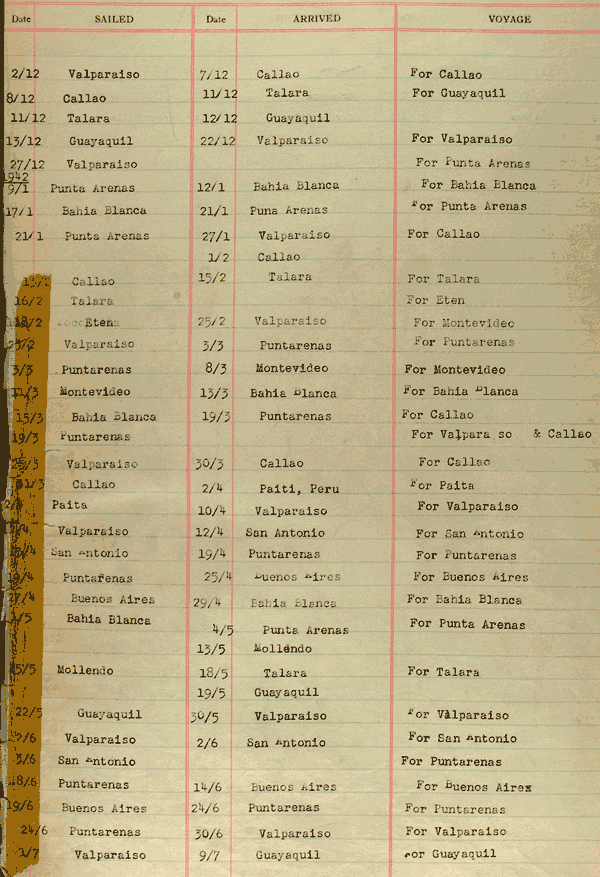 Date SAILED Date ARRIVED VOYAGE
2/12 Valparaiso 7/12 Callao For Callao
8/12 Callao 11/12 Talara For Guayaquil
11/12 Talara 12/12 Guayaquil
13/12 Guayaquil 22/12 Valparaiso For Valparaiso
27/12 Valparaiso For Punta Arenas
1942
9/1 Punta Arenas 12/1 Bahia Blanca For Bahia Blanca
17/1 Bahia Blanca 21/1 Puna Arenas For Punta Arenas
21/1 Punta Arenas 27/1 Valparaiso For Callao
1/2 Callao
Callao 15/2 Talara For Talara
16/2 Talara For Eten
Eten 25/2 Valparaiso For Montevideo
Valparaiso 3/3 Puntarenas For Puntarenas
3/3 Puntarenas 8/3 Montevideo For Montevideo
11/3 Montevideo 13/3 Bahia Blanca For Bahia Blanca
15/3 Bahia Blanca 19/3 Puntarenas For Callao
19/3 Puntarenas For Valpara so & Callao
25/3 Valparaiso 30/3 Callao For Callao
31/3 Callao 2/4 Paiti, Peru For Paita
Paita 10/4 Valparaiso For Valparaiso
Valparaiso 12/4 San Antonio For San Antonio
San Antonio 19/4 Puntarenas For Puntarenas
19/4 Puntarenas 25/4 Buenos Aires For Buenos Aires
27/4 Buenos Aires 29/4 Bahia Blanca For Bahia Blanca
1/5 Bahia Blanca 4/5 Punta Arenas For Punta Arenas
13/5 Mollendo
15/5 Mollendo 18/5 Talara For Talara
19/5 Guayaquil
22/5 Guayaquil 30/5 Valparaiso For Valparaiso
2/6 Valparaiso 2/6 San Antonio For San Antonio
3/6 San Antonio For Puntarenas
8/6 Puntarenas 14/6 Buenos Aires For Buenos Airex
19/6 Buenos Aires 24/6 Puntarenas For Puntarenas
24/6 Puntarenas 30/6 Valparaiso For Valparaiso
1/7 Valparaiso 9/7 Guayaquil For Guayaquil